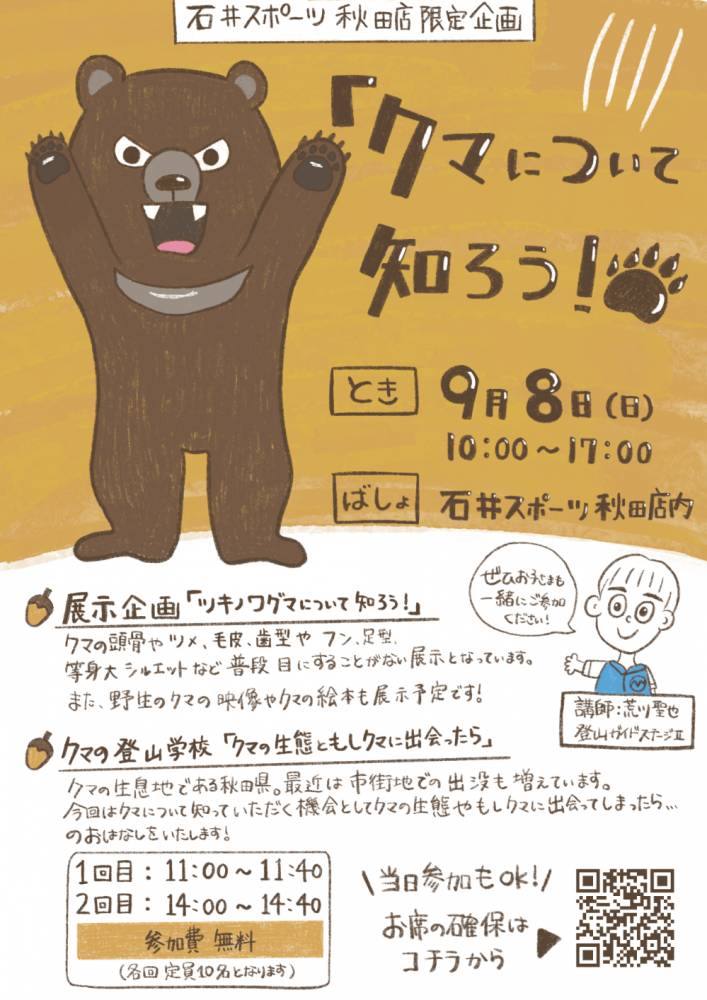 石井スポーツ 秋田店 限定企画
「クマについて
知ろう!
とき
9月8日(日)
10:00〜17:00
ばしょ
石井スポーツ 秋田店内
ぜひお子さまも
一緒にご参加
ください!
展示企画「ツキノワグマについて知ろう!」
クマの頭骨やツメ、毛皮、歯型やフン、足型、
等身大シルエットなど普段目にすることがない展示となっています。
また、野生のクマの映像やクマの絵本も展示予定です!
講師:荒川聖也
登山ガイドステージⅡ
クマの登山学校「クマの生態ともしクマに出会ったら」
クマの生息地である秋田県。最近は市街地での出没も増えています。
今回はクマについて知っていただく機会としてクマの生態やもしクマに出会ってしまったら...
のおはなしをいたします!
1回目:11:00〜11:40
2回目:14:00〜14:40
参加費 無料
(各回定員10名となります)
\当日参加もOK!/
お席の確保は
コチラから